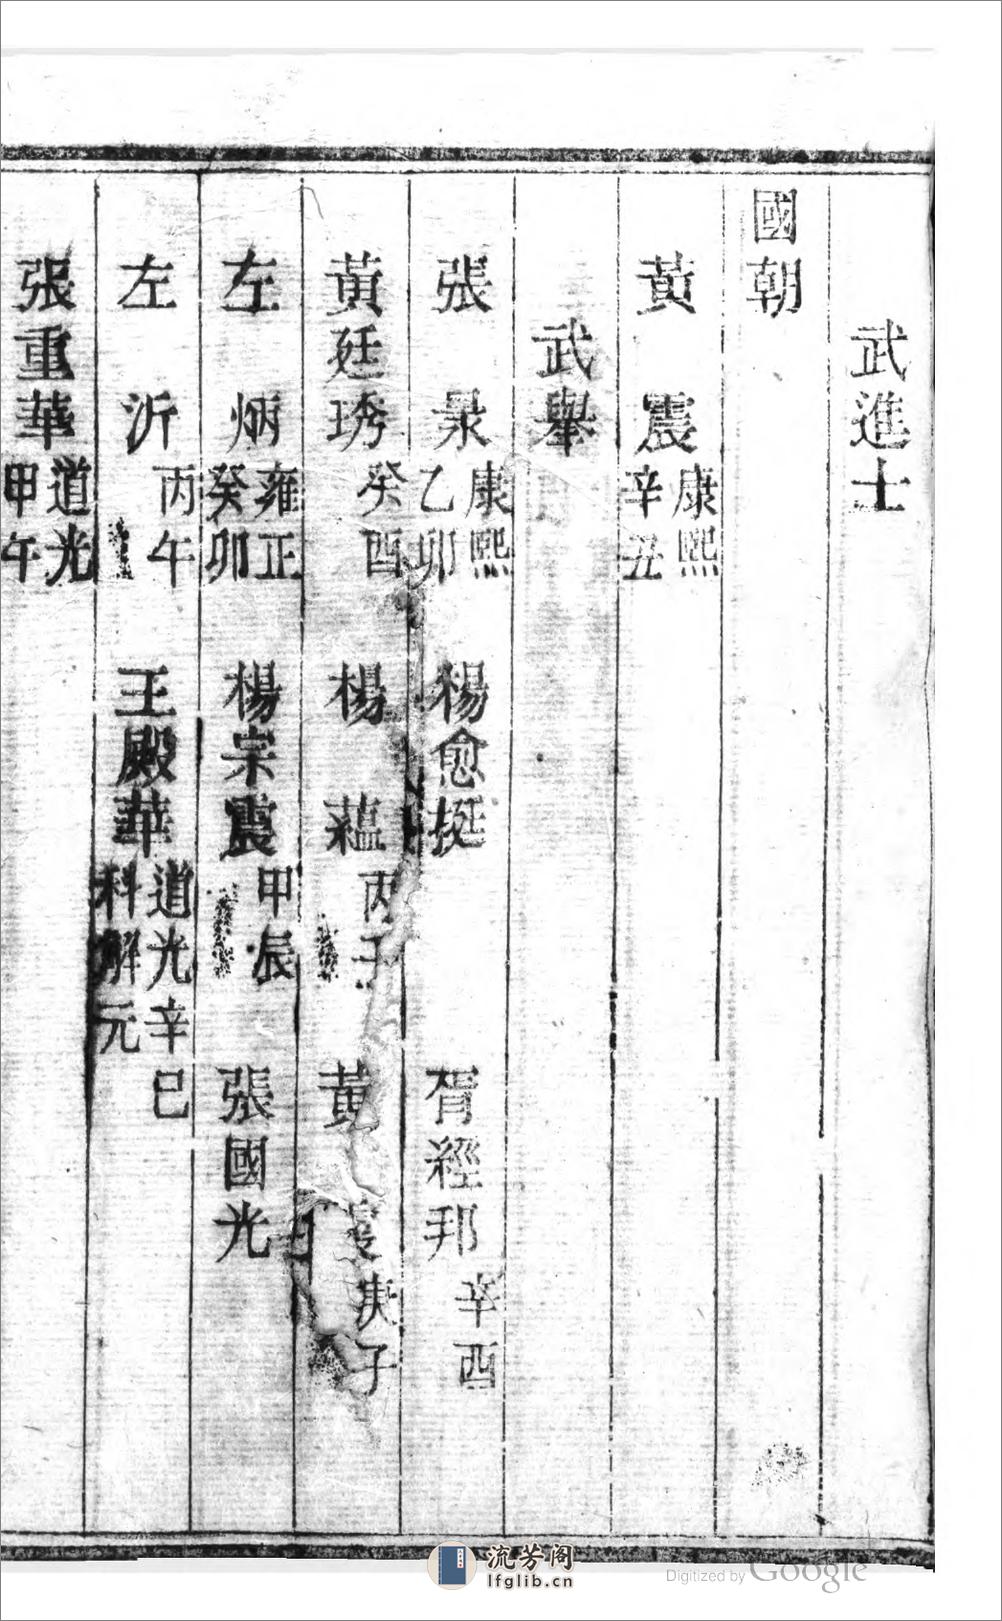 武進士
國朝
黃 震 康熙辛丑
武舉
張 㬌 康熙乙卯 楊愈挺 胥經邦 辛酉
黃廷琇 癸酉 楊 蘊 丙子 黃 庚子
左 炳 雍正癸卯 楊宗震 甲辰 張國光
左 沂 丙午 王殿華 道光辛巳科解元
張重華 道光甲午
流芳阁
lfglib.cn
Digitized by Google